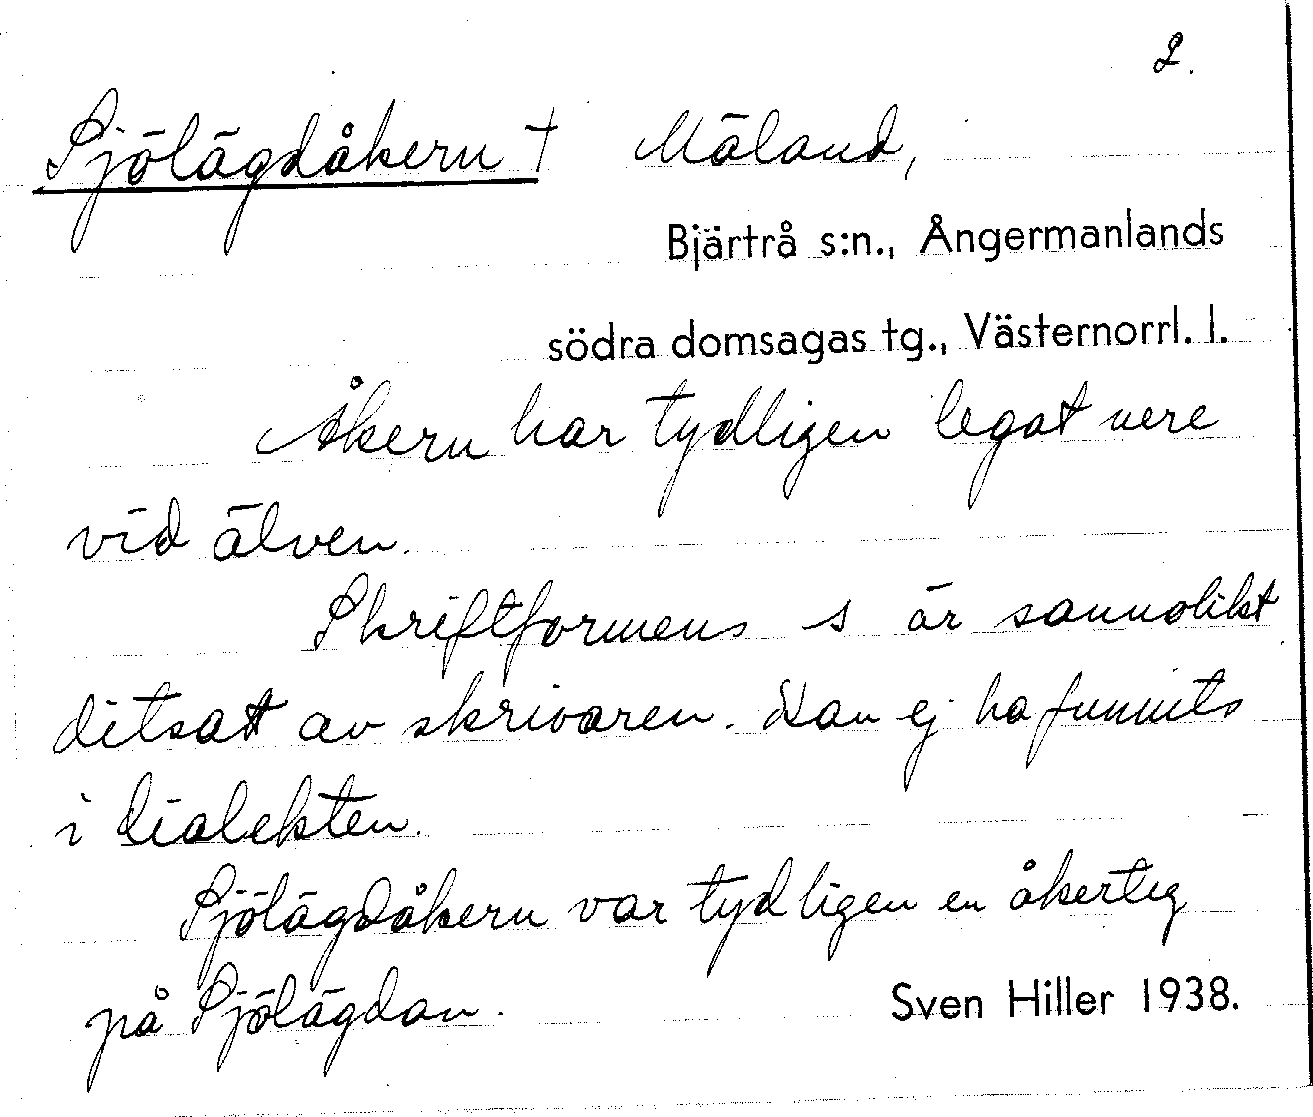 2.
Sjölägdåkern † Mäland,
Bjärtrå s:n., Ångermanlands
södra domsagas tg., Västernorrl. l.
Åkern har tydligen legat nere
vid älven.
Skriftformens s är sannolikt
ditsatt av skrivaren. Kan ej ha funnits
i dialekten.
Sjölägdåkern var tydligen en åkerteg
på Sjölägdan.
Sven Hiller 1938.